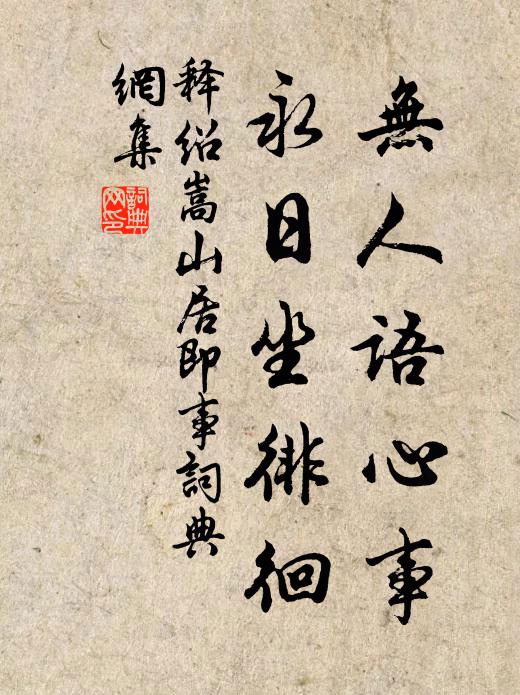 無人語心事
永日坐徘徊
释绍嵩山居即事詞典
網集
詞典網印